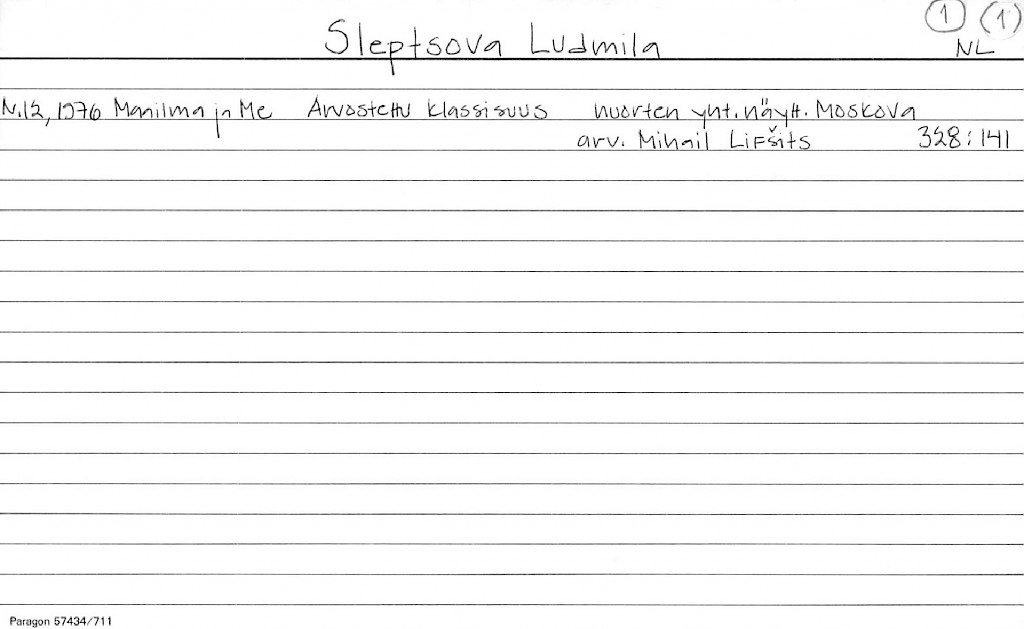 1 (1)
Sleptsova Ludmila NL
N.12, 1976 Maailma ja Me Arvostettu klassisuus nuorten yht.näytt. Moskova
arv. Mihail Lifšits 328:141
Paragon 57434/711